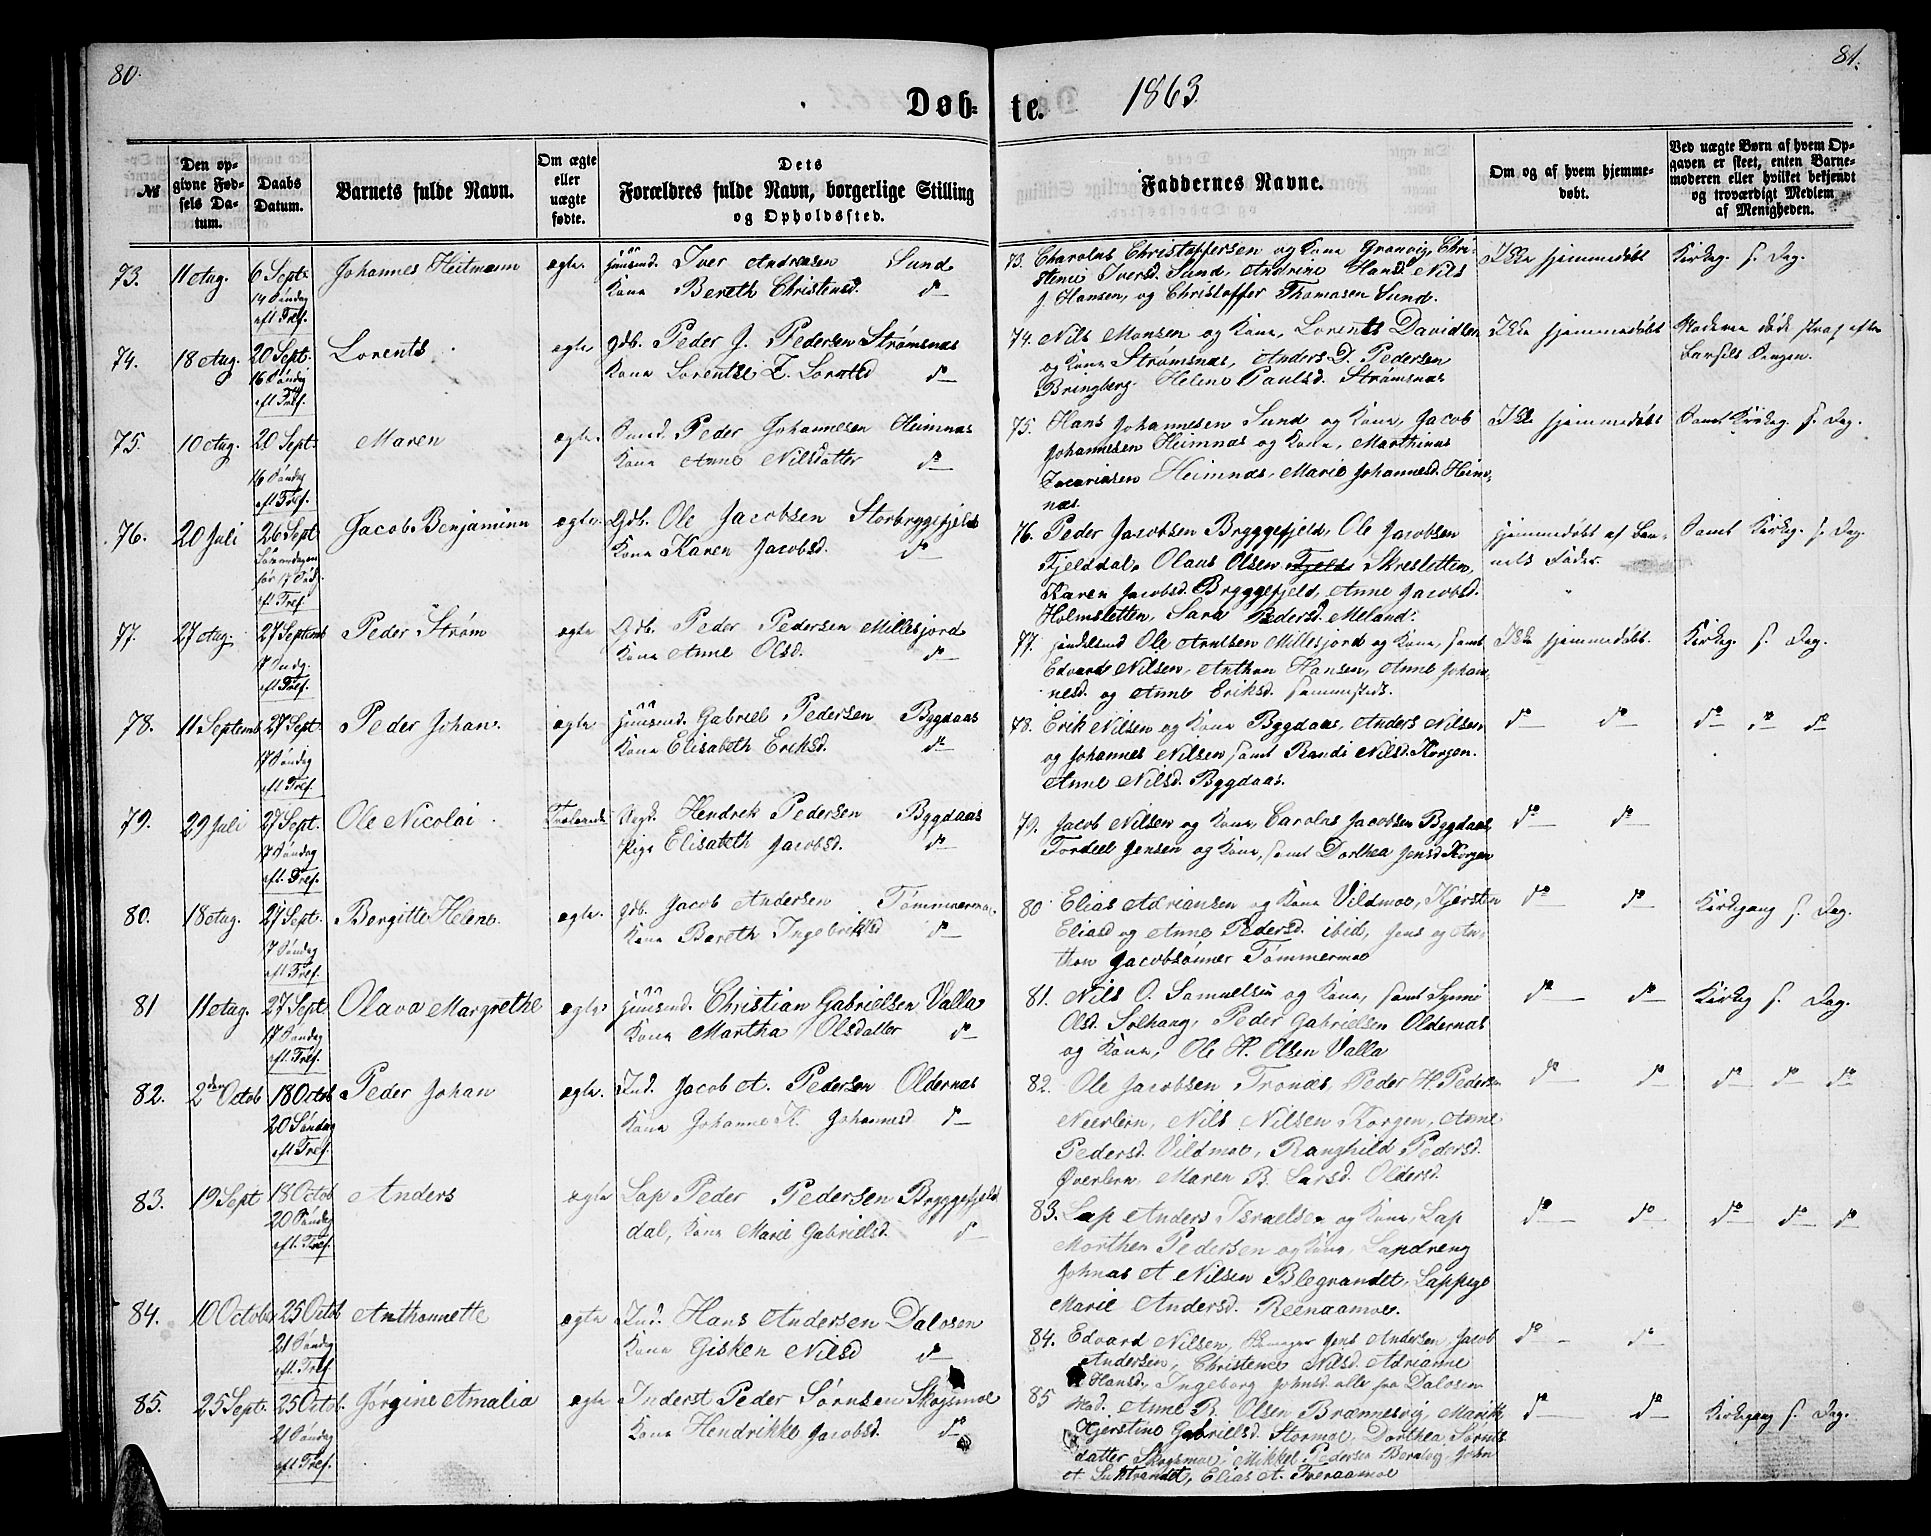 80.
81.
Døb-
te.
1863
№
Den op-
givne Fød-
sels Da-
tum.
Daabs
Datum.
Barnets fulde Navn.
Om ægte
eller
uægte
fødte.
Dets
Forældres fulde Navn, borgerlige Stilling
og Opholdssted.
Faddernes Navne.
Om og af hvem hjemme-
døbt.
Ved uægte Børn af hvem Op-
gaven er skeet, enten Barne-
moderen eller hvilket bekjendt
og troværdigt Medlem
af Menigheden.
73. 11 Aug. 6 Sept. Johannes Heitmann ægte Huusmd. Iver Andersen Sund
14 Søndag
eft Tref. Kone Bereth Christensd. do
73. Charolus Christoffersen og Kone Granvig, Chri-
stence Iversd. Sund, Andrine Hansd. Nils
J. Hansen, og Christoffer Thomasen Sund.
Ikke hjemmedøbt Kirkeg. s. Dag.
74. 18 Aug. 20 Sept. Lorents ægte Gdb. Peder J. Pedersen Strømsnæs
16 Søndag
eft Tref. Kone Lorentse Z. Lorntsd do
74. Nils Monsen og Kone, Lorents Davidsen
og Kone Strømsnæs, Anders D. Pedersen
Bringberg. Helene Paulsd. Strømsnæs
Ikke hjemmedøbt Moderen døde strax efter
Barsels Sengen.
75. 10 Aug. 20 Sept. Maren ægte. Peder Johannesen Heimnæs
16 Søndag
eft Tref. Kone Anne Nilsdatter do
75. Hans Johannesen Sund og Kone, Jacob
Johannesen Heimnæs og Kone, Marthinus
Zacariasen Heimnæs, Marie Johannesd. Heim-
næs.
Ikke hjemmedøbt Samt Kirkeg. s. Dag.
76. 20 Juli 26 Sept Jacob Benjamin ægte. Gdb. Ole Jacobsen Storbryggefjeld
Løverdagen
før 17 Sød.
eft Tref Kone Karen Jacobsd. do
76. Peder Jacobsen Bryggefjeld, Ole Jacobsen
Fjelddal, Olaus Olsen Fjeld Skresletten,
Karen Jacobsd. Bryggefjeld, Anne Jacobsd.
Holmsletten, Sara Pedersd. Meland.
Hjemmedøbt af Bar-
nets Fader. Samt Kirkeg. s. Dag.
77. 27 Aug. 27 Septemb Peder Strøm ægte Gdb. Peder Pedersen Millesjord
17 Sødg.
eft Tref. Kone Anne Olsd. do
77. Ole Arntsen Millesjord og Kone, samt
Edvard Nilsen, Anthon Hansen, Anne Johan-
nesd. og Anne Eriksd. sammesteds.
Ikke hjemmedøbt. Kirkeg. s. Dag.
78. 11 Septemb 27 Sept. Peder Johan. ægte Huusmd. Gabriel Pedersen Bygdaas
17 Søndag
eft Tref. Kone Elisabeth Eriksd. do
78. Erik Nilsen og Kone Bygdaas, Anders Nilsen
og Johannes Nilsen samt Randi Nilsd. Korgen.
Anne Nilsd. Bygdaas.
do do do do do
79. 29 Juli 27 Sept. Ole Nicolai Hendrek Pedersen Bygdaas
17 Søndag
eft. Tref. Pige Elisabeth Jacobsd. do
79. Jacob Nilsen og Kone, Carolus Jacobsen Bygdaas,
Tordel Jensen og Kone, samt Dorthea Jensd. Korgen
do do
80. 18 Aug. 27 Sept. Bergitte Helene. ægte. Gdb. Jacob Andersen Tømmermoe
17 Søndag
eft Tref. Kone Bereth Ingebriktsd do
80 Elias Adriansen og Kone Vildmoe, Kjersten
Eliasd og Anne Pedersd. ibid, Jens og An-
thon Jacobsønner Tømmermoe
do do Kirkegang s. Dag.
81 11 Aug. 27 Sept Olava Margrethe ægte. Huusmd. Christian Gabrielsen Valla
17 Søndag
eft. Tref. Kone Martha Olsdatter do
81. Nils O. Samuelsen og Kone, samt Synni
Olsd. Solhaug, Peder Gabrielsen Oldernæs
og Kone, Ole H. Olsen Valla
do do Kirkeg s. Dag.
82. 2den Octob 18 Octob Peder Johan ægte. Ind. Jacob A. Pedersen Oldernæs
20 Søndag
eft Tref. Kone Johanne K. Johannesd do
82. Ole Jacobsen Tronæs, Peder H. Pedersen
Neerlern, Nils Nilsen Korgen, Anne
Pedersd. Vildmoe, Ranghild Pedersd.
Øverlern, Maren B. Larsd. Oldersd.
do do do do do
83. 19 Sept 18 Octob Anders ægte Lap Peder Pedersen Bryggefjeld
20 Søndag
eft. Tref. dal, Kone Marie Gabrielsd. do
83. Lap Anders Israelsen og Kone, Lap
Morthen Pedersen og Kone, Lapdreng
Johnas A Nilsen Blegrandet, Lappige
Marie Andersd. Reenaamoe.
do do do do do
84. 10 October 25 Octb Anthonnette ægte Ind. Hans Andersen Dalosen
21 Søndag
eft Tref. Kone Gisken Nilsd do
84. Edvard Nilsen, Jens Andersen, Jacob
Andersen, Christence Nilsd. Adrianne
Hansd., Ingeborg Johnsd. alle fra Dalosen
do do
85. 25 Sept. 25 Octob. Jørgine Amalia ægte Inderst Peder Sørnsen Skogsmoe
21 Søndag
eft Tref. Kone Hendrikke Jacobsd. do
85 Mad. Anne R. Olsen Brænnesvig, Marith
Kjerstine Gabrielsd. Stormoe, Dorthea Sørns-
datter Skogsmoe, Mikkel Pedersen
Elias A. Tveraamoe
do do Kirkegang s. Dag.